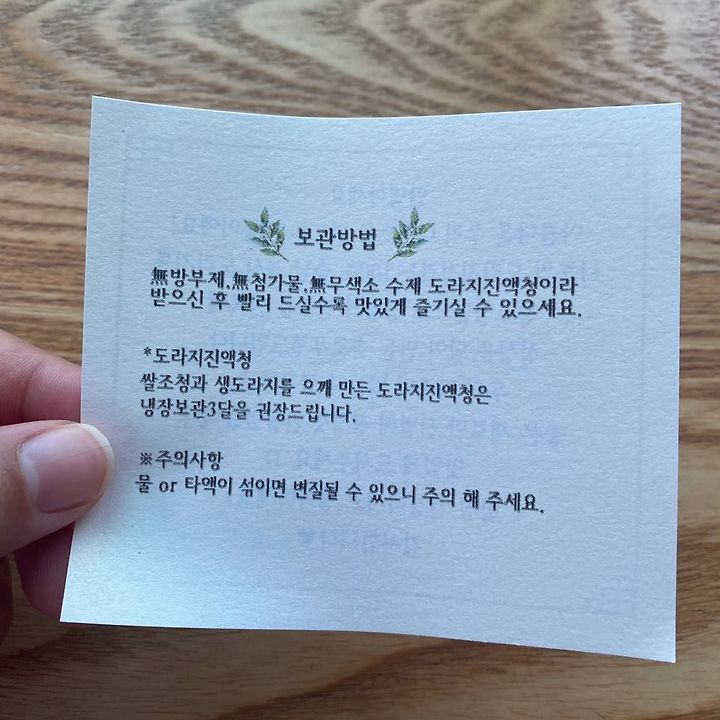 보관방법
無방부제,無첨가물,無무색소 수제 도라지진액청이라
받으신 후 빨리 드실수록 맛있게 즐기실 수 있으세요.
*도라지진액청
쌀조청과 생도라지를 으깨 만든 도라지진액청은
냉장보관3달을 권장드립니다.
※주의사항
물 or 타액이 섞이면 변질될 수 있으니 주의 해 주세요.